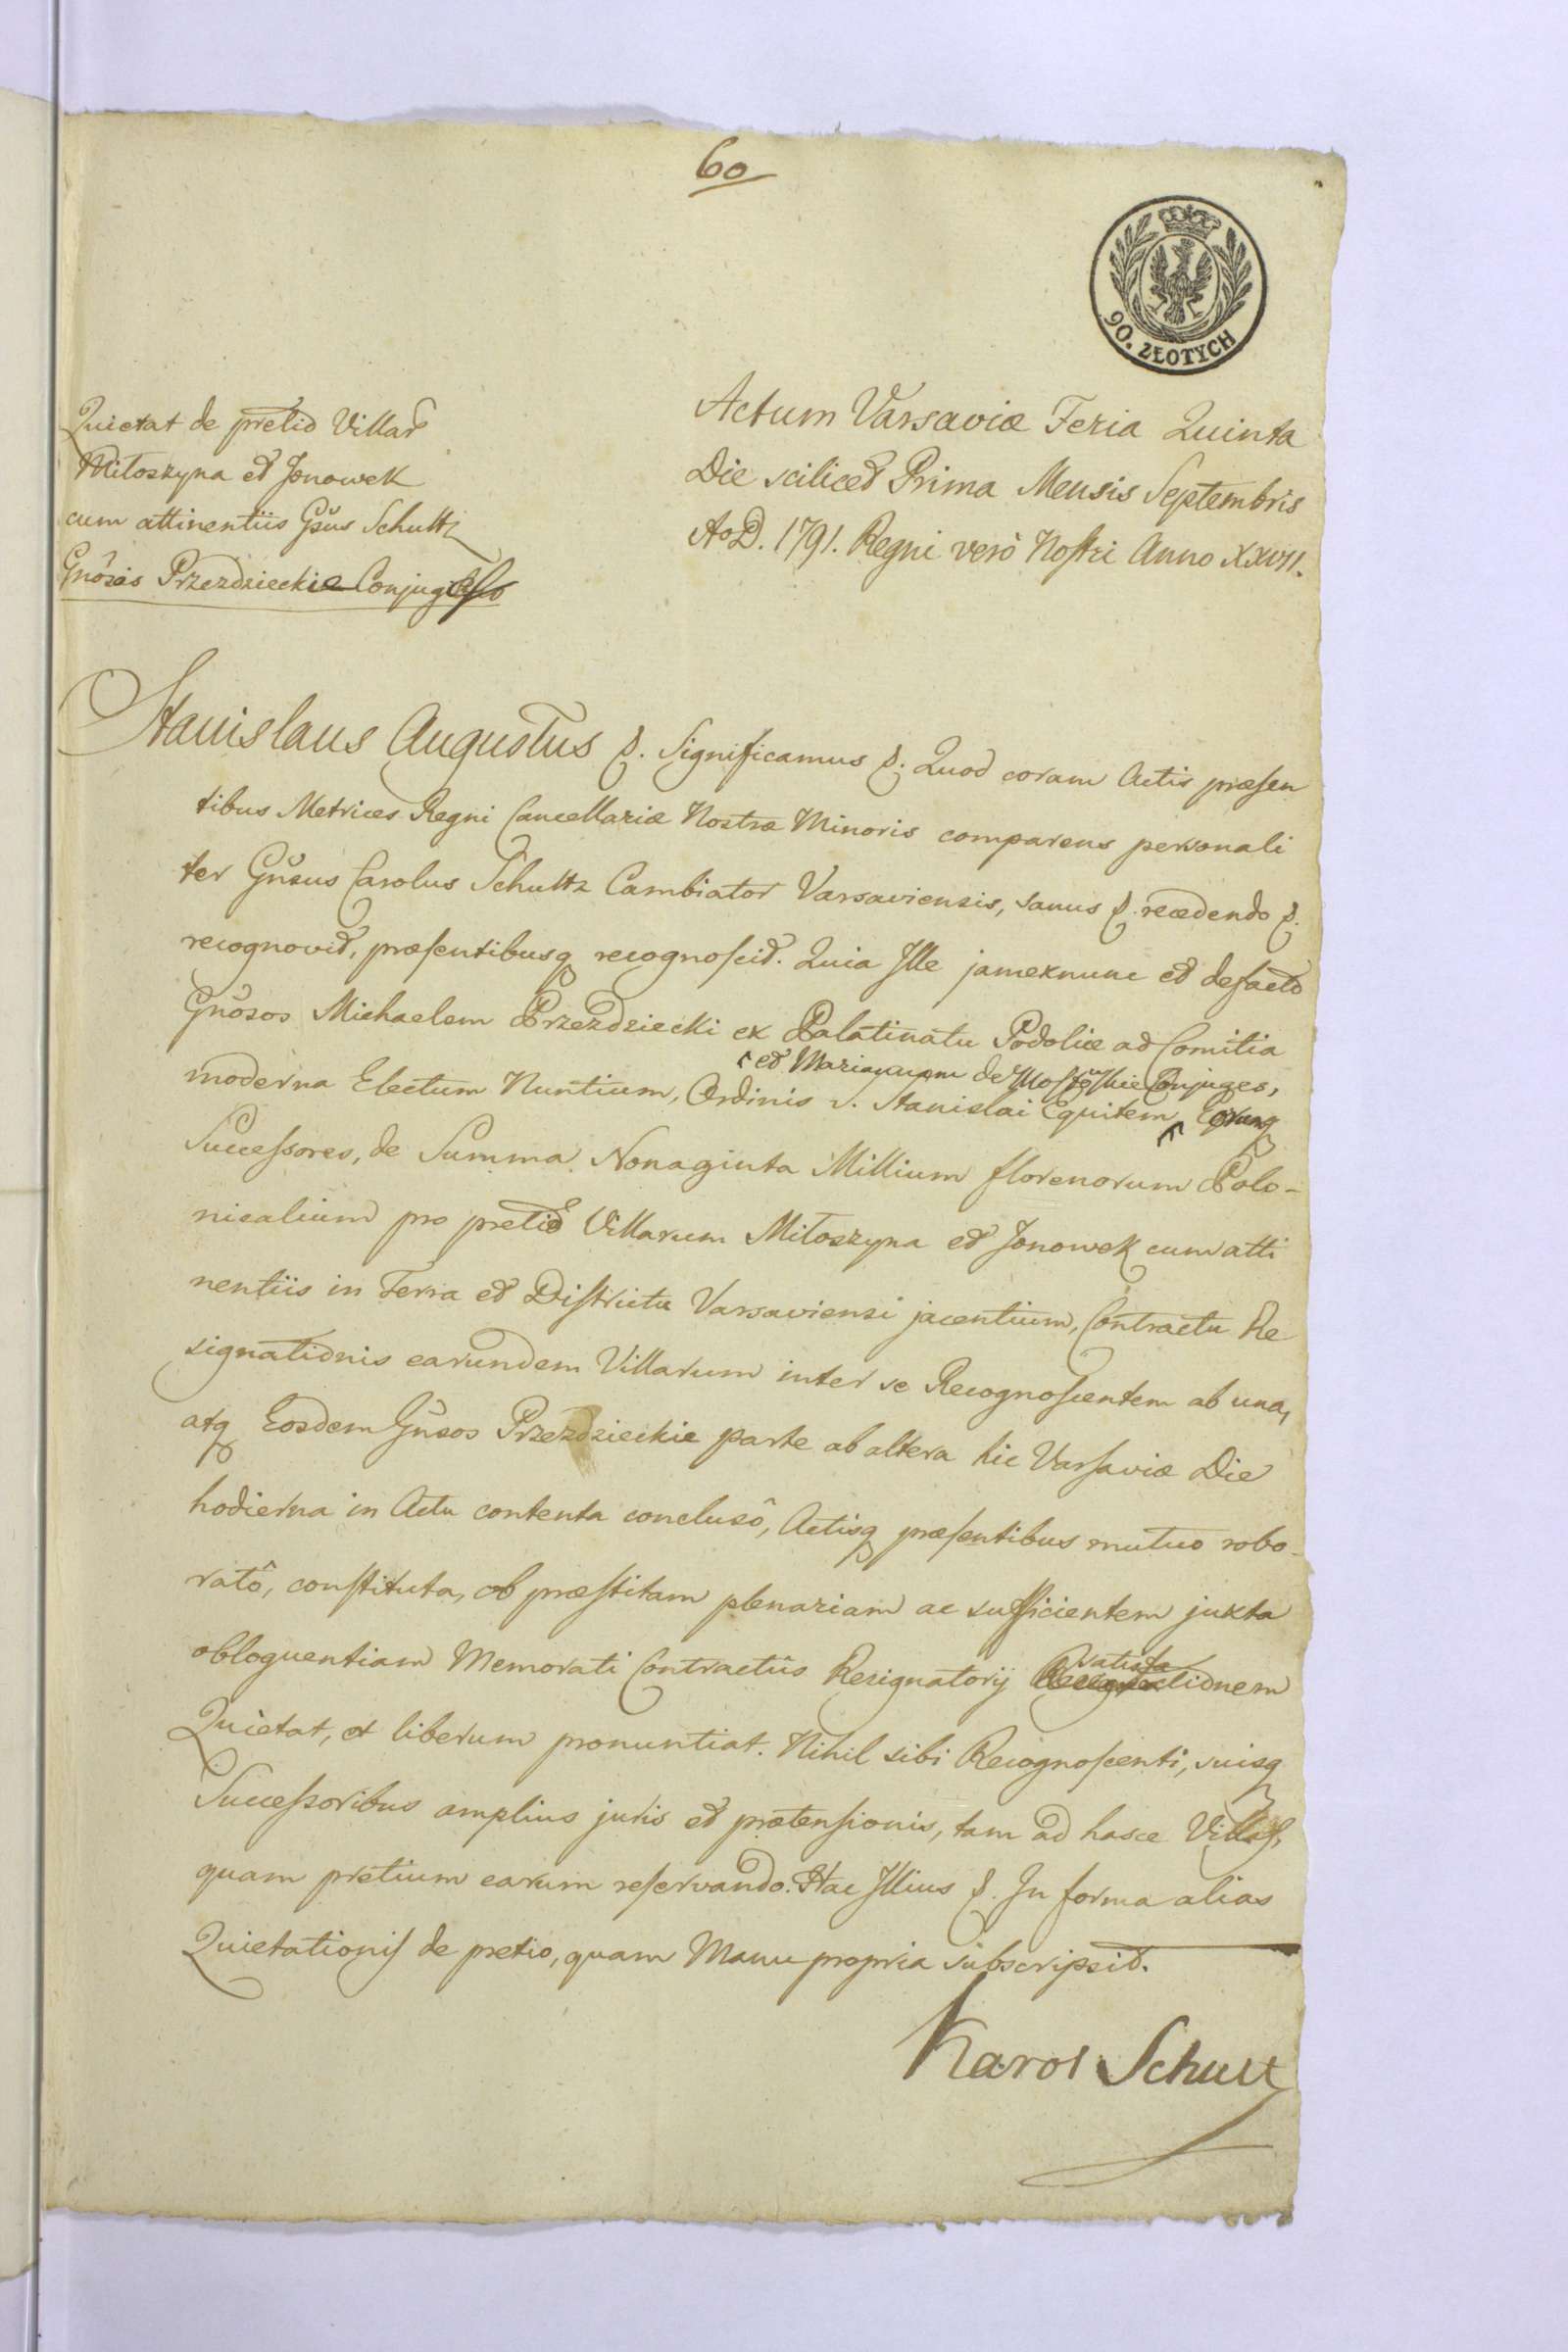 60
90. ZŁOTYCH
Quietat de pretio Villar
Miłoszyna et Jonowek
cum attinentiis Gsus Schultz
Gnosos Przezdzieckie Conjuges
Actum Varsaviæ Feria Quinta
Die scilicet Prima Mensis Septembris
Ao D. 1791. Regni verò Nostri Anno XXVII.
Stanislaus Augustus &. Significamus &. Quod coram Actis præsen
tibus Metrices Regni Cancellariæ Nostræ Minoris comparens personali
ter Gnsus Carolus Schultz Cambiator Varsaviensis, sanus &. recedendo &.
recognovit, præsentibusq recognoscit. Quia Ille jamexnunc et defacto
Gnosos Michaelem Przezdziecki ex Palatinatu Podoliæ ad Comitia
et Mariannam de Mostowskie Conjuges,
moderna Electum Nuntium, Ordinis S. Stanislai Equitem, Eorumq
Successores, de Summa Nonaginta Millium florenorum Polo-
nicalium pro pretio Villarum Miłoszyna et Jonowek cum atti
nentiis in Terra et Districtu Varsaviensi jacentium, Contractu Re
signationis earundem Villarum inter se Recognoscentem ab una,
atq Eosdem Gnsos Przezdzieckie parte ab altera hic Varsaviæ Die
hodierna in Actu contenta conclusô, Actisq præsentibus mutuo robo-
ratô, constituta, ob præstitam plenariam ac sufficientem juxta
obloquentiam Memorati Contractûs Resignatorij satisfa
ctionem
Quietat, et liberum pronuntiat. Nihil sibi Recognoscenti, suisq
Successoribus amplius juris et prætensionis, tam ad hasce Villas,
quam pretium earum reservando. Hac Illius &. In forma alias
Quietationis de pretio, quam Manu propria subscripsit.
Karol Schultz